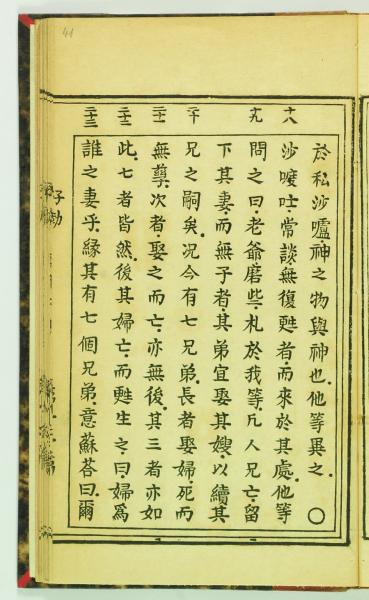 於私沙嚧神之物與神也.他等異之.〇
十八 沙嗄吐.常談無復甦者.而來於其處.他等
十九 問之曰.老爺磨些.札於我等.凡人兄亡.留
下其妻.而無子者.其弟宜娶其嫂.以續其
二十 兄之嗣矣.况今有七兄弟.長者娶婦.死而
二十一 無孽.次者.娶之而亡.亦無後.其三者亦如
二十二 此.七者皆然.後其婦亡.而甦生之曰.婦為
二十三 誰之妻乎.緣其有七個兄弟.意蘇荅曰.爾
子劫
41